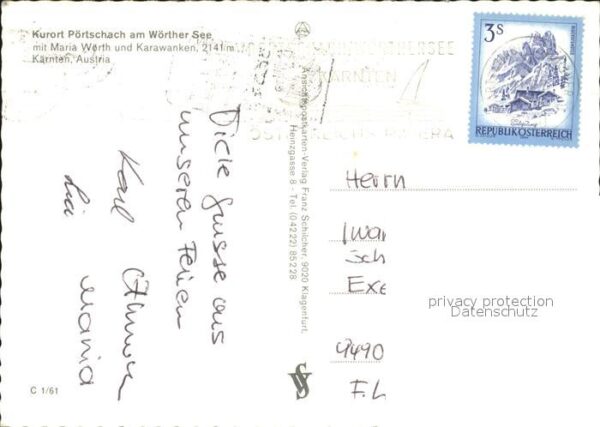 Kurort Pörtschach am Wörther See
mit Maria Wörth und Karawanken, 2141 m
Kärnten, Austria
WÖRTHERSEE
KÄRNTEN
ÖSTERREICHS RIVIERA
3 S
REPUBLIK ÖSTERREICH
Dicke Grüsse aus
unseren Ferien
Karl
Maria
Ansichtspostkarten-Verlag Franz Schilcher, 9020 Klagenfurt,
Heinzgasse 8 - Tel. (04222) 85228
Herrn
Iwan
Sch
Exe
9490
F.L
privacy protection
Datenschutz
C 1/61